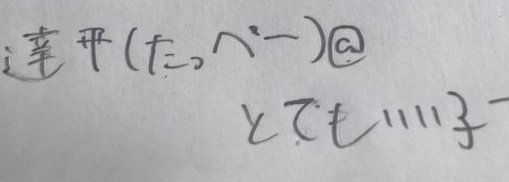 達平(たっぺー)@
とてもいい子ー